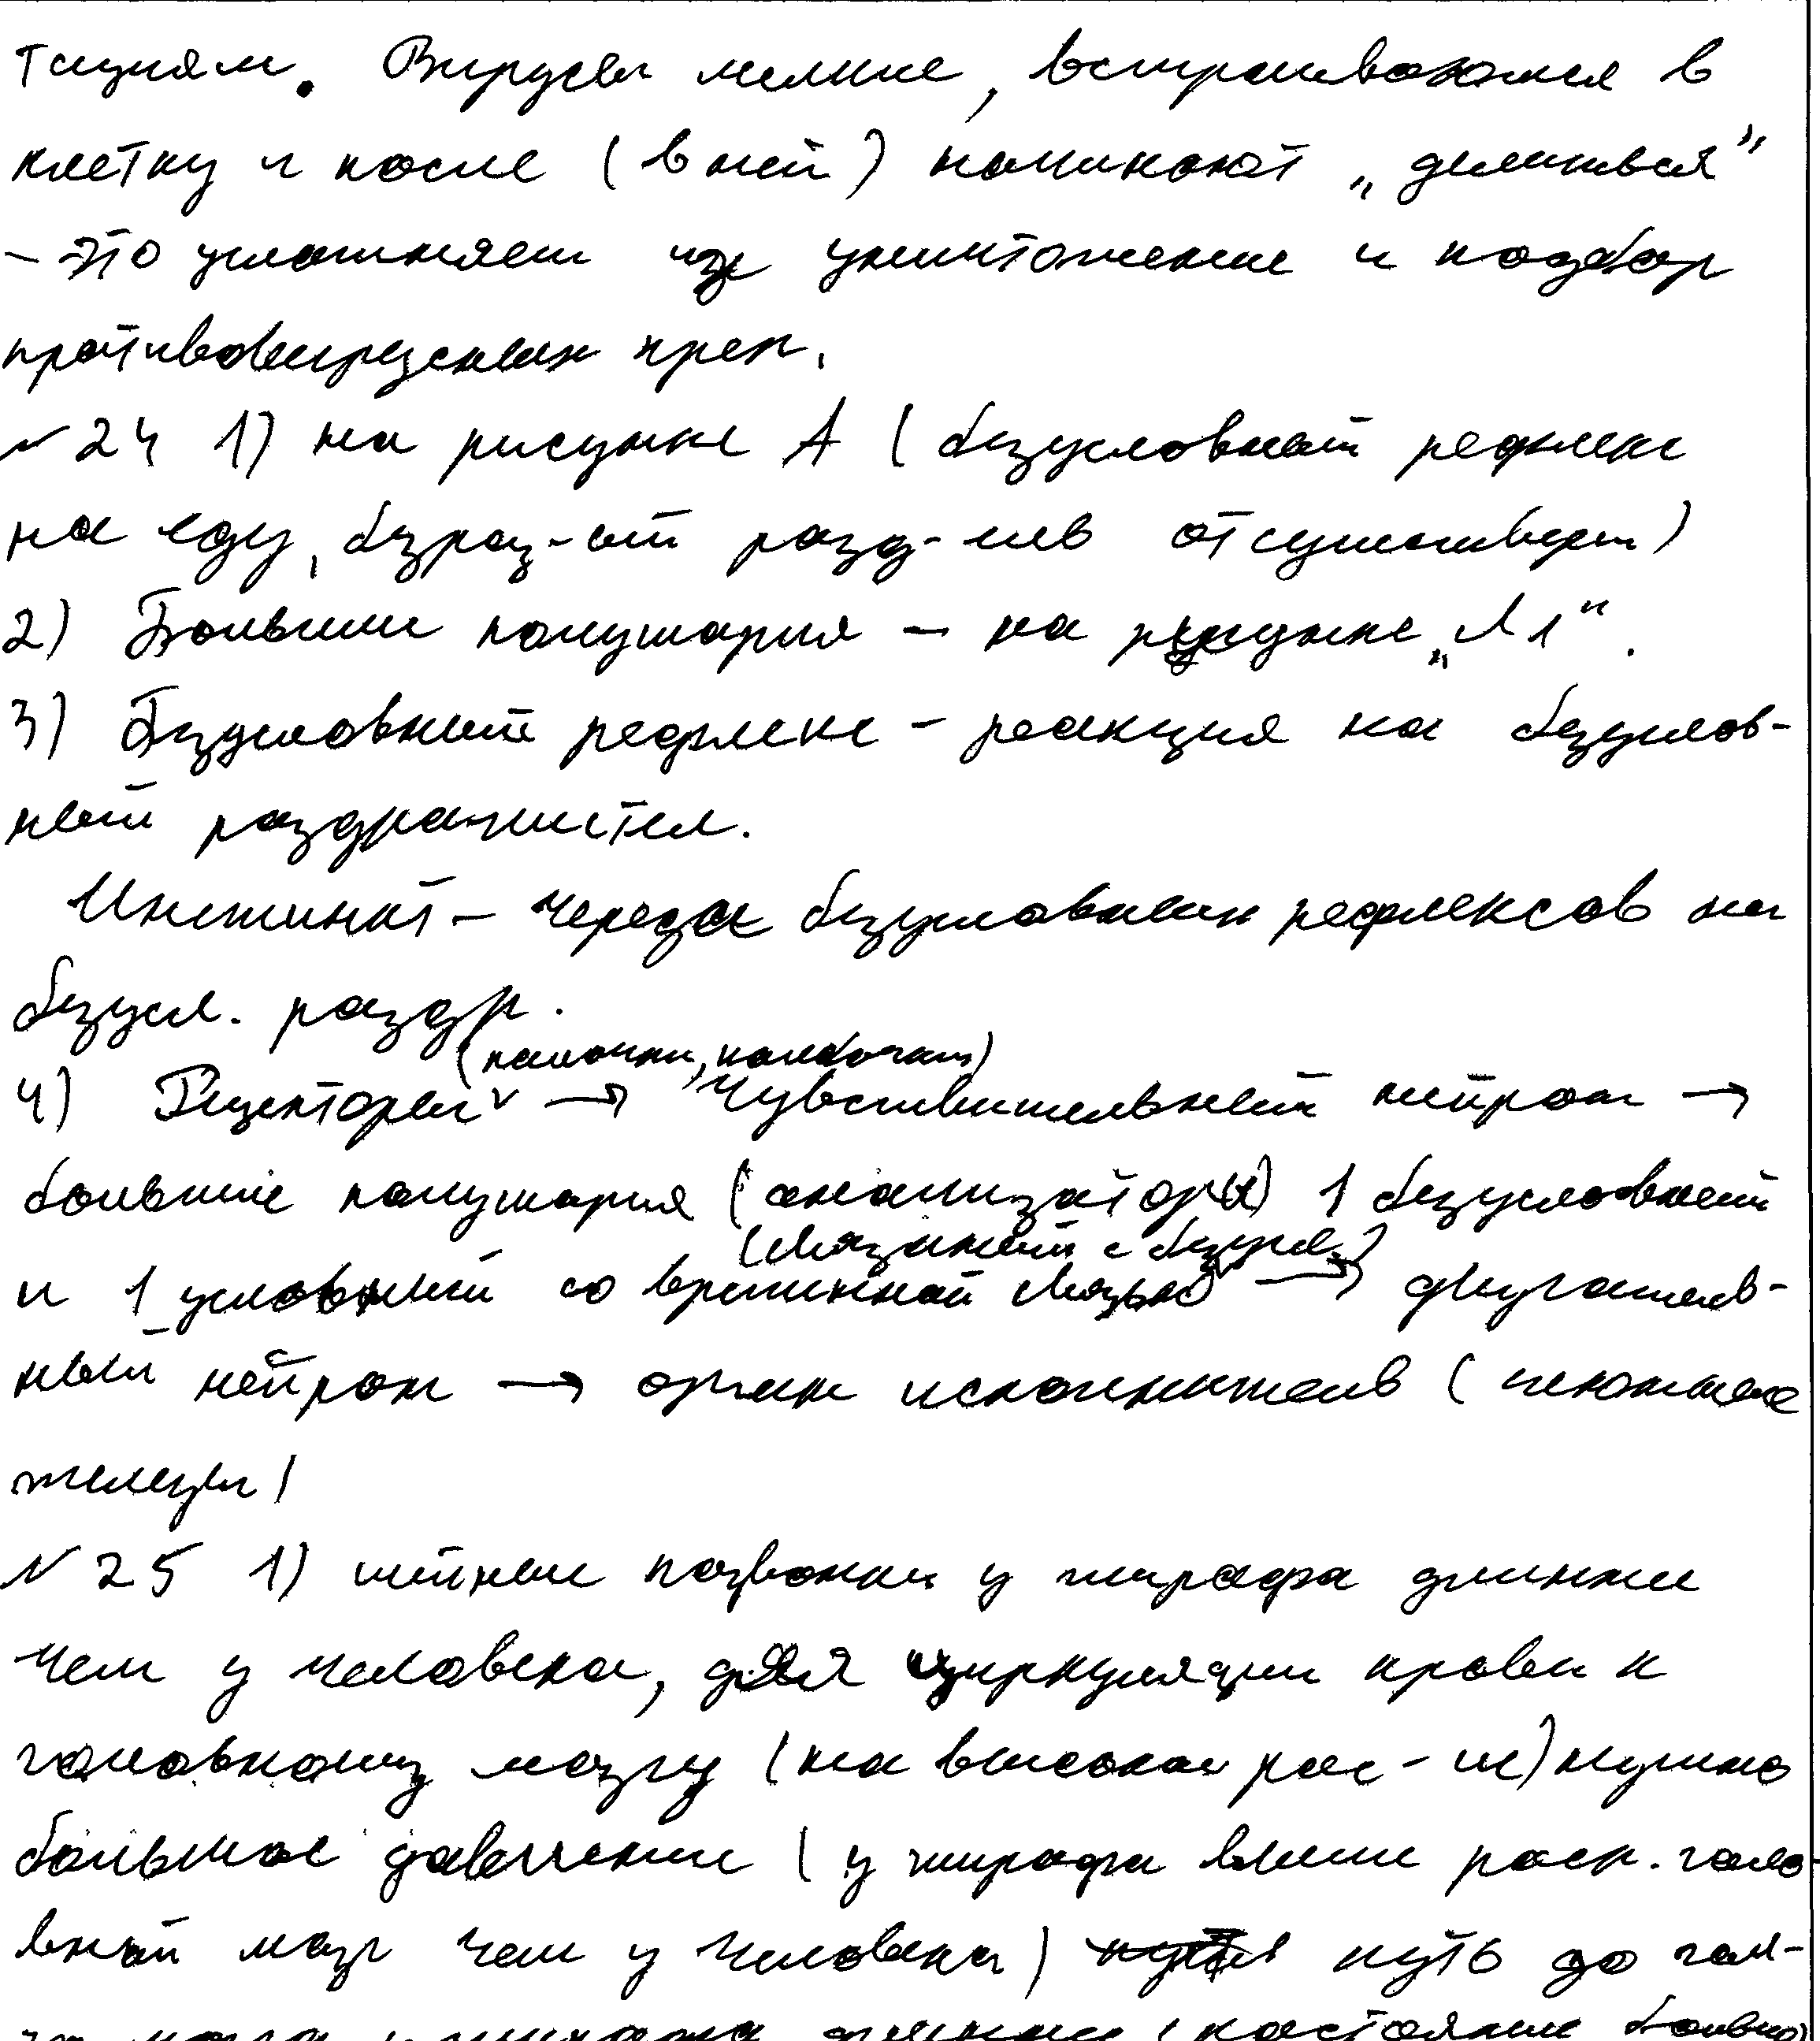 тациям. Вирусы мелкие, встраиваются в
клетку и после (в ней) начинают „делиться”
- это усложняет их уничтожение и подбор
противовирусных преп.
№ 24 1) на рисунке А (безусловный рефлекс
на еду, безраз-ый разд-ль отсутствует)
2) Большие полушария – на рисунке „№ 1”.
3) Безусловный рефлекс – реакция на безуслов-
ный раздражител.
Инстинкт – череда безусловных рефлексов на
безусл. раздр.
(палочки, колбочки)
4) Рецепторы → Чувствительный нейрон →
большие полушария (анализаторы) 1 безусловный
(связанный с безусл.)
и 1 условный со временной связью → двигатель-
ный нейрон → орган исполнитель (слюнные
железы)
№ 25 1) шейные позвонки у жирафа длиннее
чем у человека, для циркуляции крови к
головному мозгу (на высокое рас-ие) нужно
большое давление (у жирафа выше расп. голо-
вной мозг чем у человека) путь до гол-
го мозга у жирафа длиннее (расстояние больше)